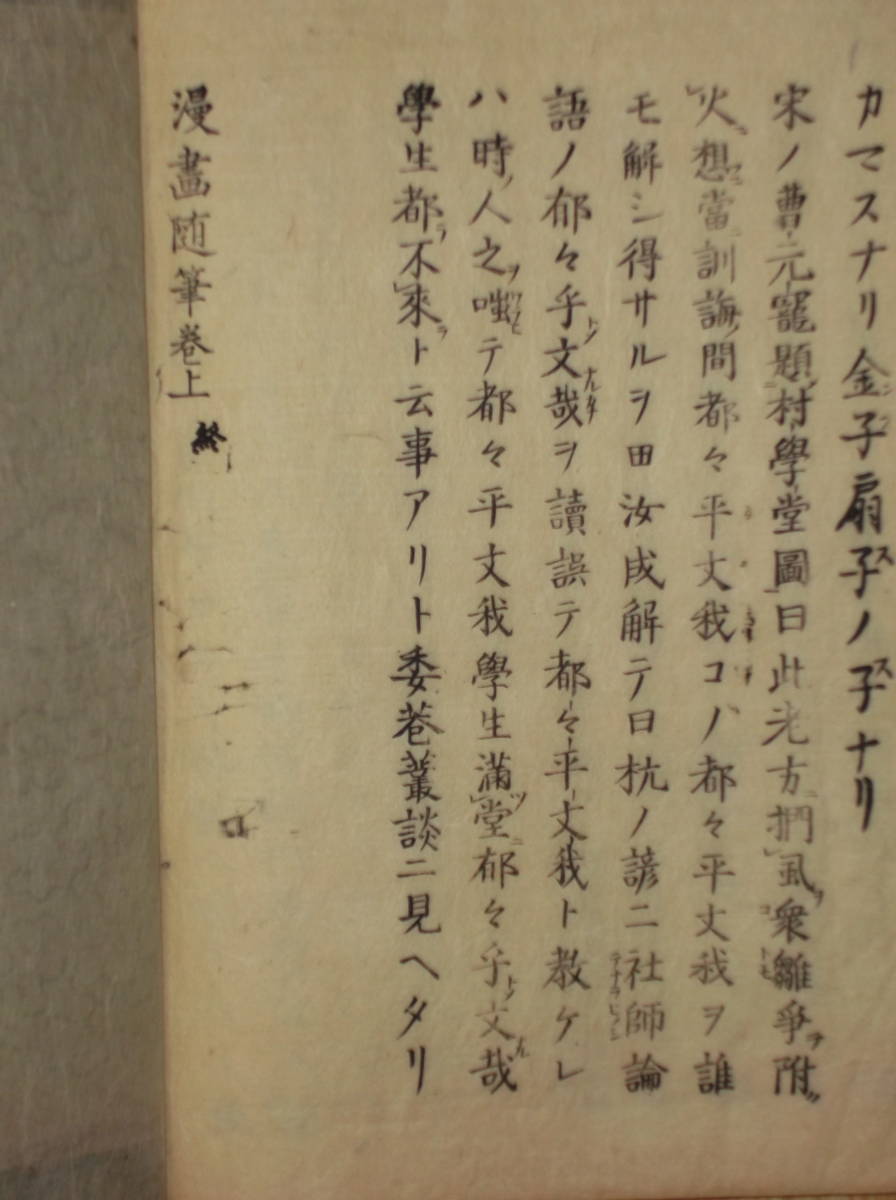 カマスナリ金子扇子ノ子ナリ
宋ノ曹元寵題村學堂圖曰此老方捫虱衆雛爭附
火想當訓誨問都々平丈我コノ都々平丈我ヲ誰
モ解シ得サルヲ田汝成解テ曰杭ノ諺ニ社師論
語ノ郁々乎文哉ヲ讀誤テ都々平丈我ト教ケレ
ハ時ノ人之ヲ嗤テ都々平丈我學生滿堂郁々乎文哉
學生都不來ト云事アリト委巷叢談ニ見ヘタリ
漫畵随筆巻上
終